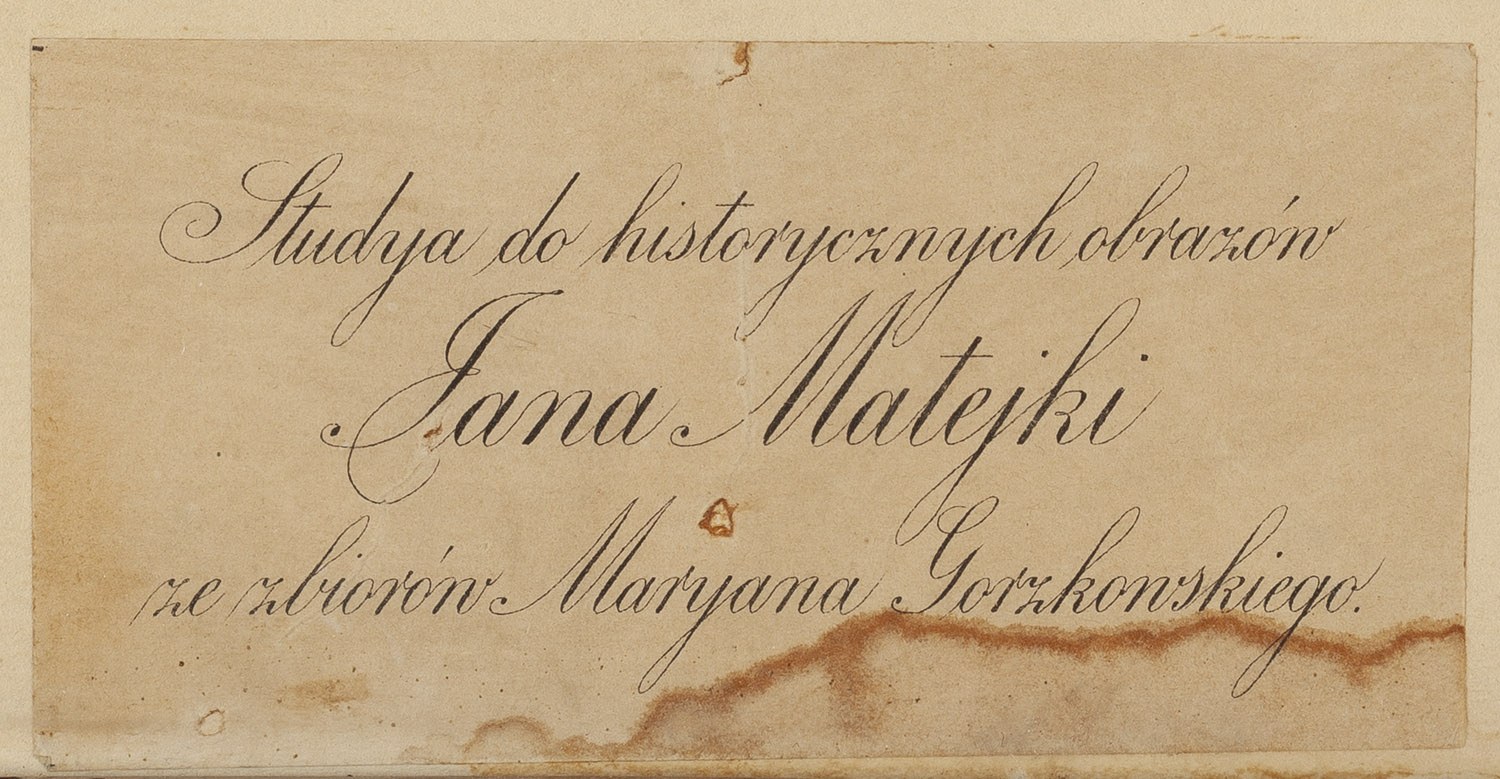 Studya do historycznych obrazów
Jana Matejki
ze zbiorów Maryana Gorzkowskiego.